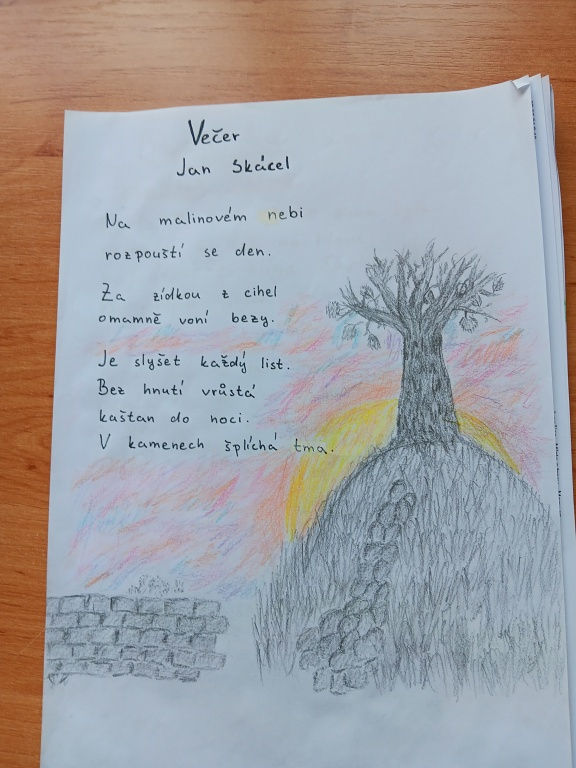 Večer
Jan Skácel
Na malinovém nebi
rozpouští se den.
Za zídkou z cihel
omamně voní bezy.
Je slyšet každý list.
Bez hnutí vrůstá
kaštan do noci.
V kamenech šplíchá tma.